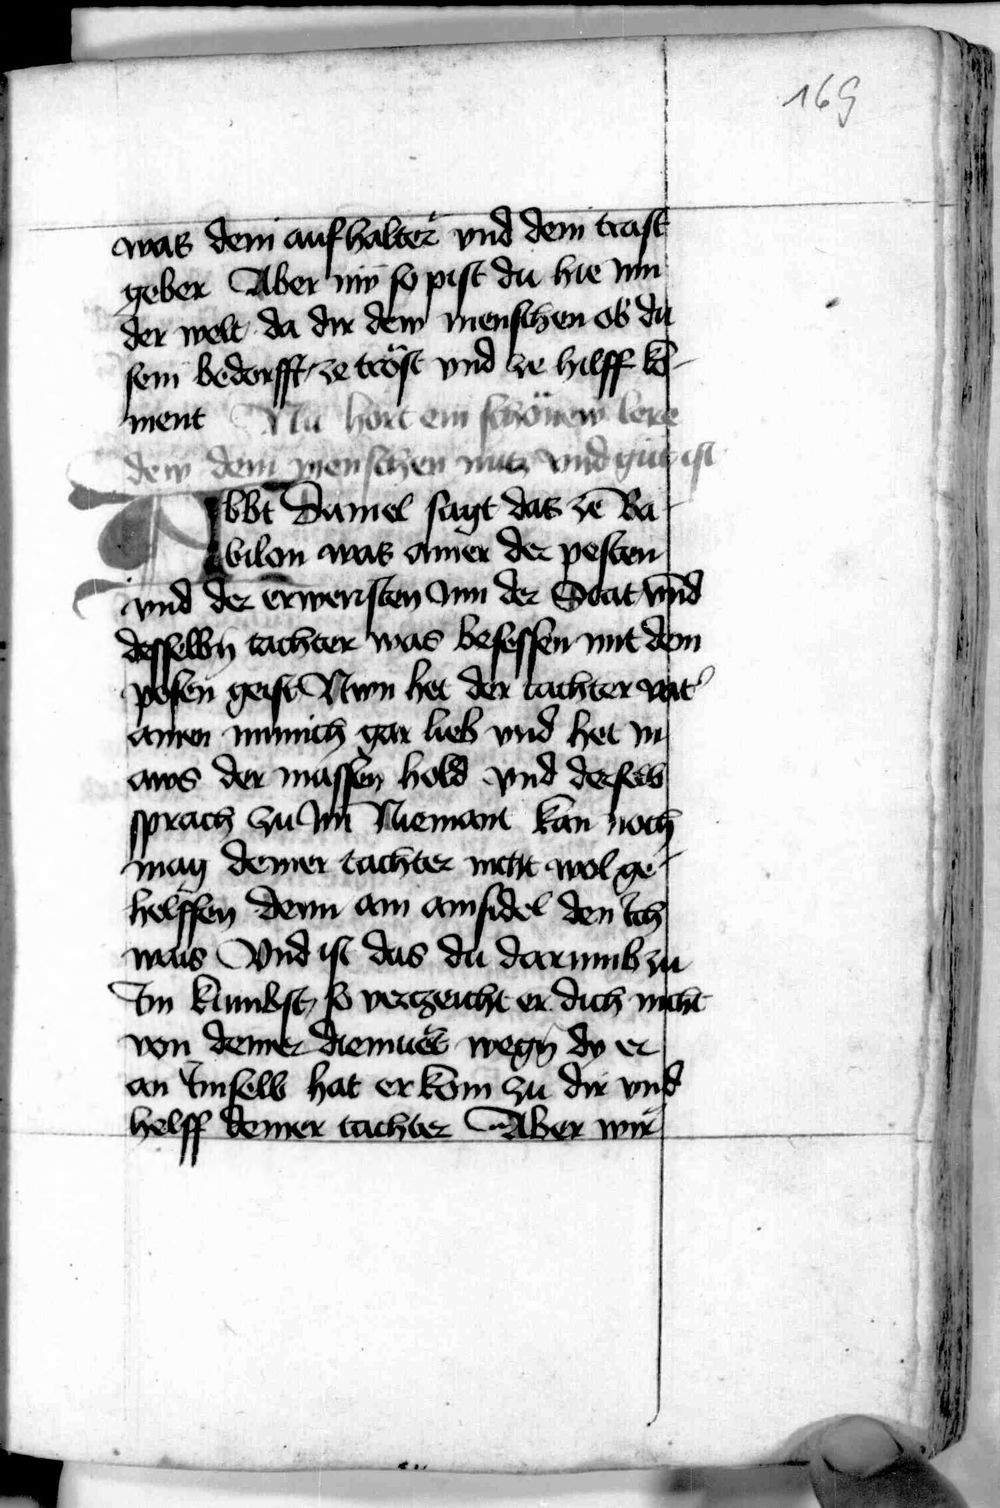 169
was dein aufhalter vnd dein trast
geber Aber nw so pist du hie inn
der welt da dir dew menschen ob du
sein bedorfft ze tröst vnd ze hilff kō-
ment Nu hort ein schönew lere
dew dem menschen nutz vnd gut ist
Abbt Daniel sagt das zē Ba-
bilon was ainer der pesten
vnd der erweristen Inn der Stat vnd
desselbn tachter was besessen mit dem
posen geist Nwn het der tachter vat'
ainen münich gar lieb vnd het in
aws der massen hold vnd derselb
sprach zu Im Niemant kan noch
mag deiner tachter nicht wol ge-
helffen denn ain ainsidel den Ich
wais Vnd ist das du darumb zu
Im kumbst so verczeicht er dich nicht
von deiner diemuet wegn dy er
an Imselb hat er kom zu dir vnd
helff deiner tachter Aber wir